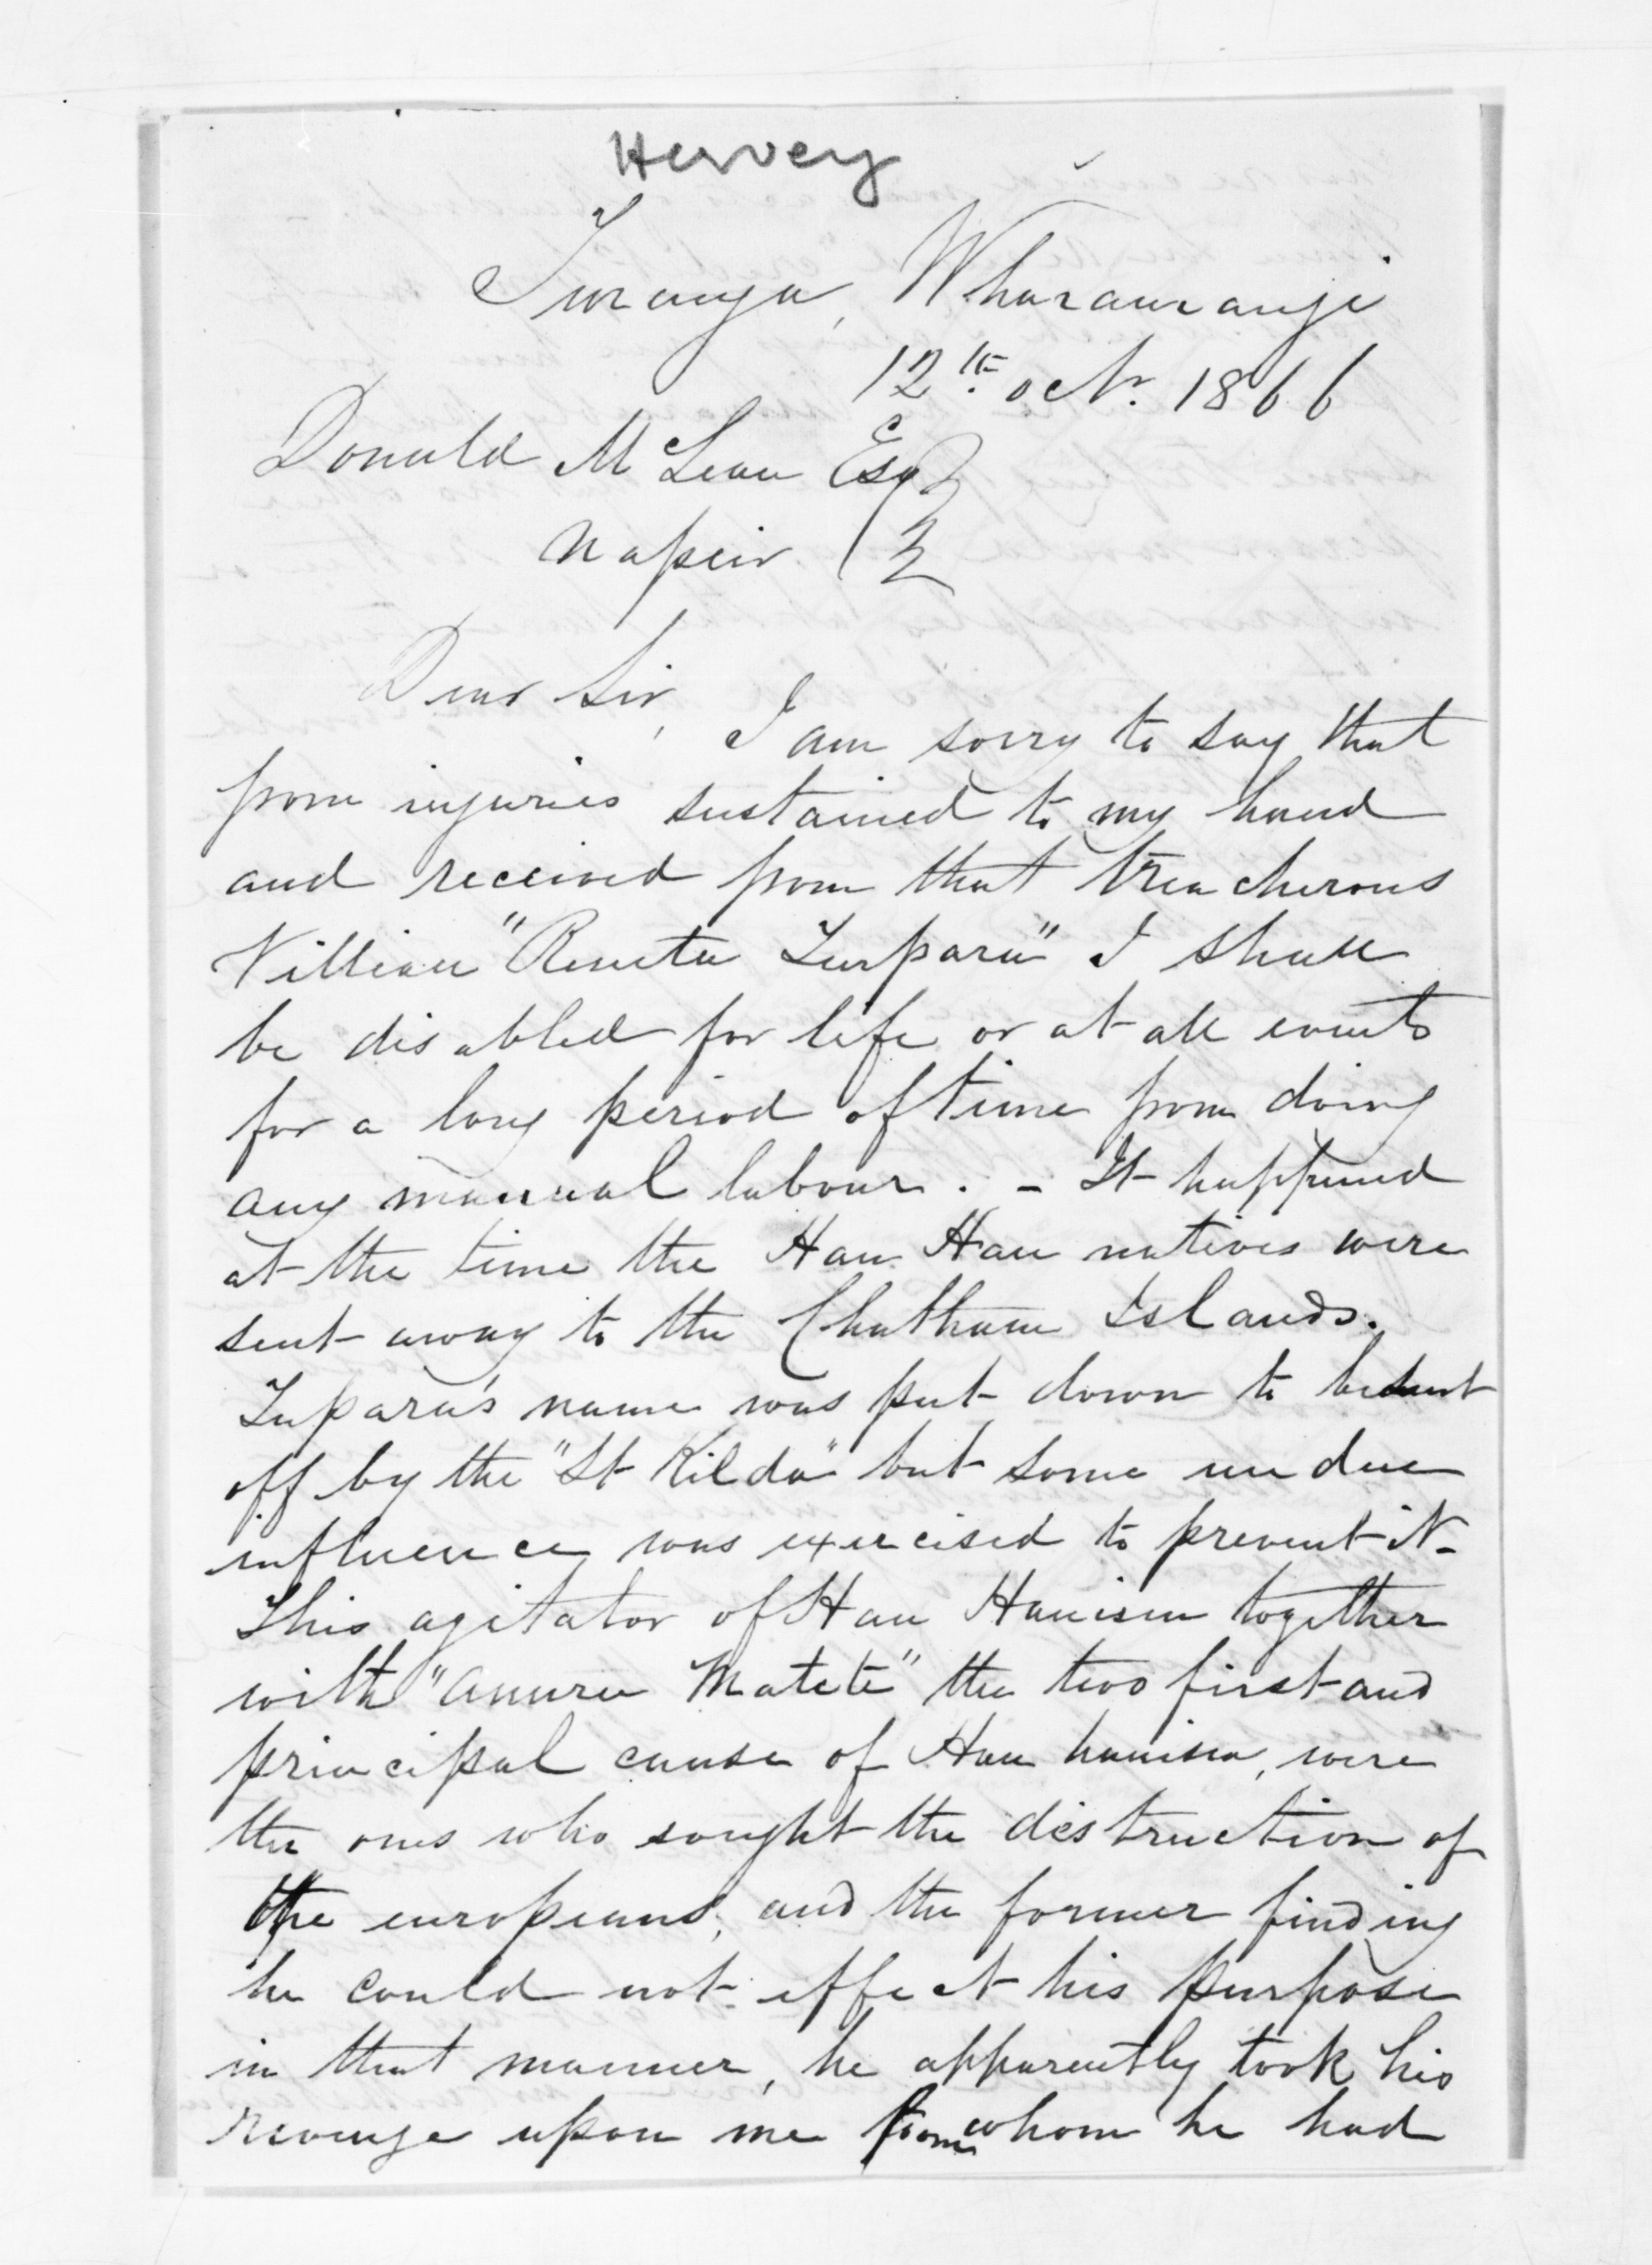 Hervey
Turanga, Wharaurangi
12th. octr. 1866
Donald McLean Esqr
Napeir
Dear Sir,
I am sorry to say that
from injuries sustained to my hand
and received from that treacherous
Villian "Reneta Turpara" I shall
be disabled for life or at all events
for a long period of time from doing
any manual labour. - It happened
at the time the Hau Hau natives were
sent away to the Chatham Islands.
Tupara's name was put down to be sent
off by the "St Kilda" but some undue
influence was exercised to prevent it -
This agitator of Hau Hauism together
with "Anaru Matete" the two first and
principal cause of Hau hauism, were
the ones who sought the destruction of
the europeans, and the former finding
he could not effect his purpose
in that manner, he apparently took his
revenge upon me from whom he had